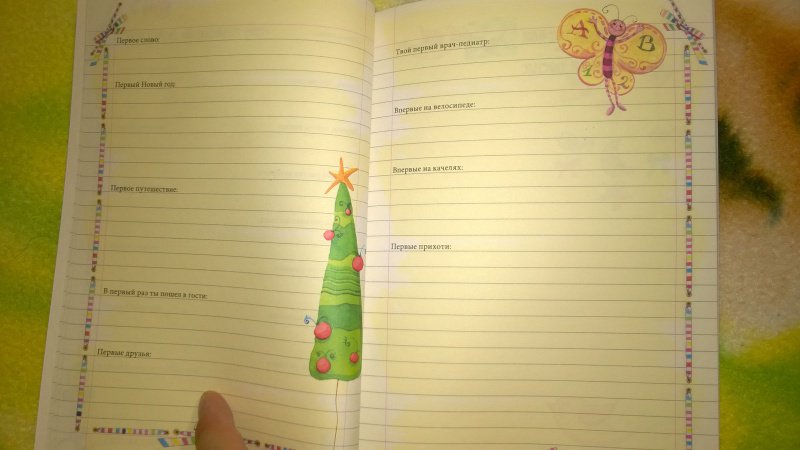 Первое слово:
Первый Новый год:
Первое путешествие:
В первый раз ты пошел в гости:
Первые друзья:
Твой первый врач-педиатр:
A B
1 2
Впервые на велосипеде:
Впервые на качелях:
Первые прихоти: